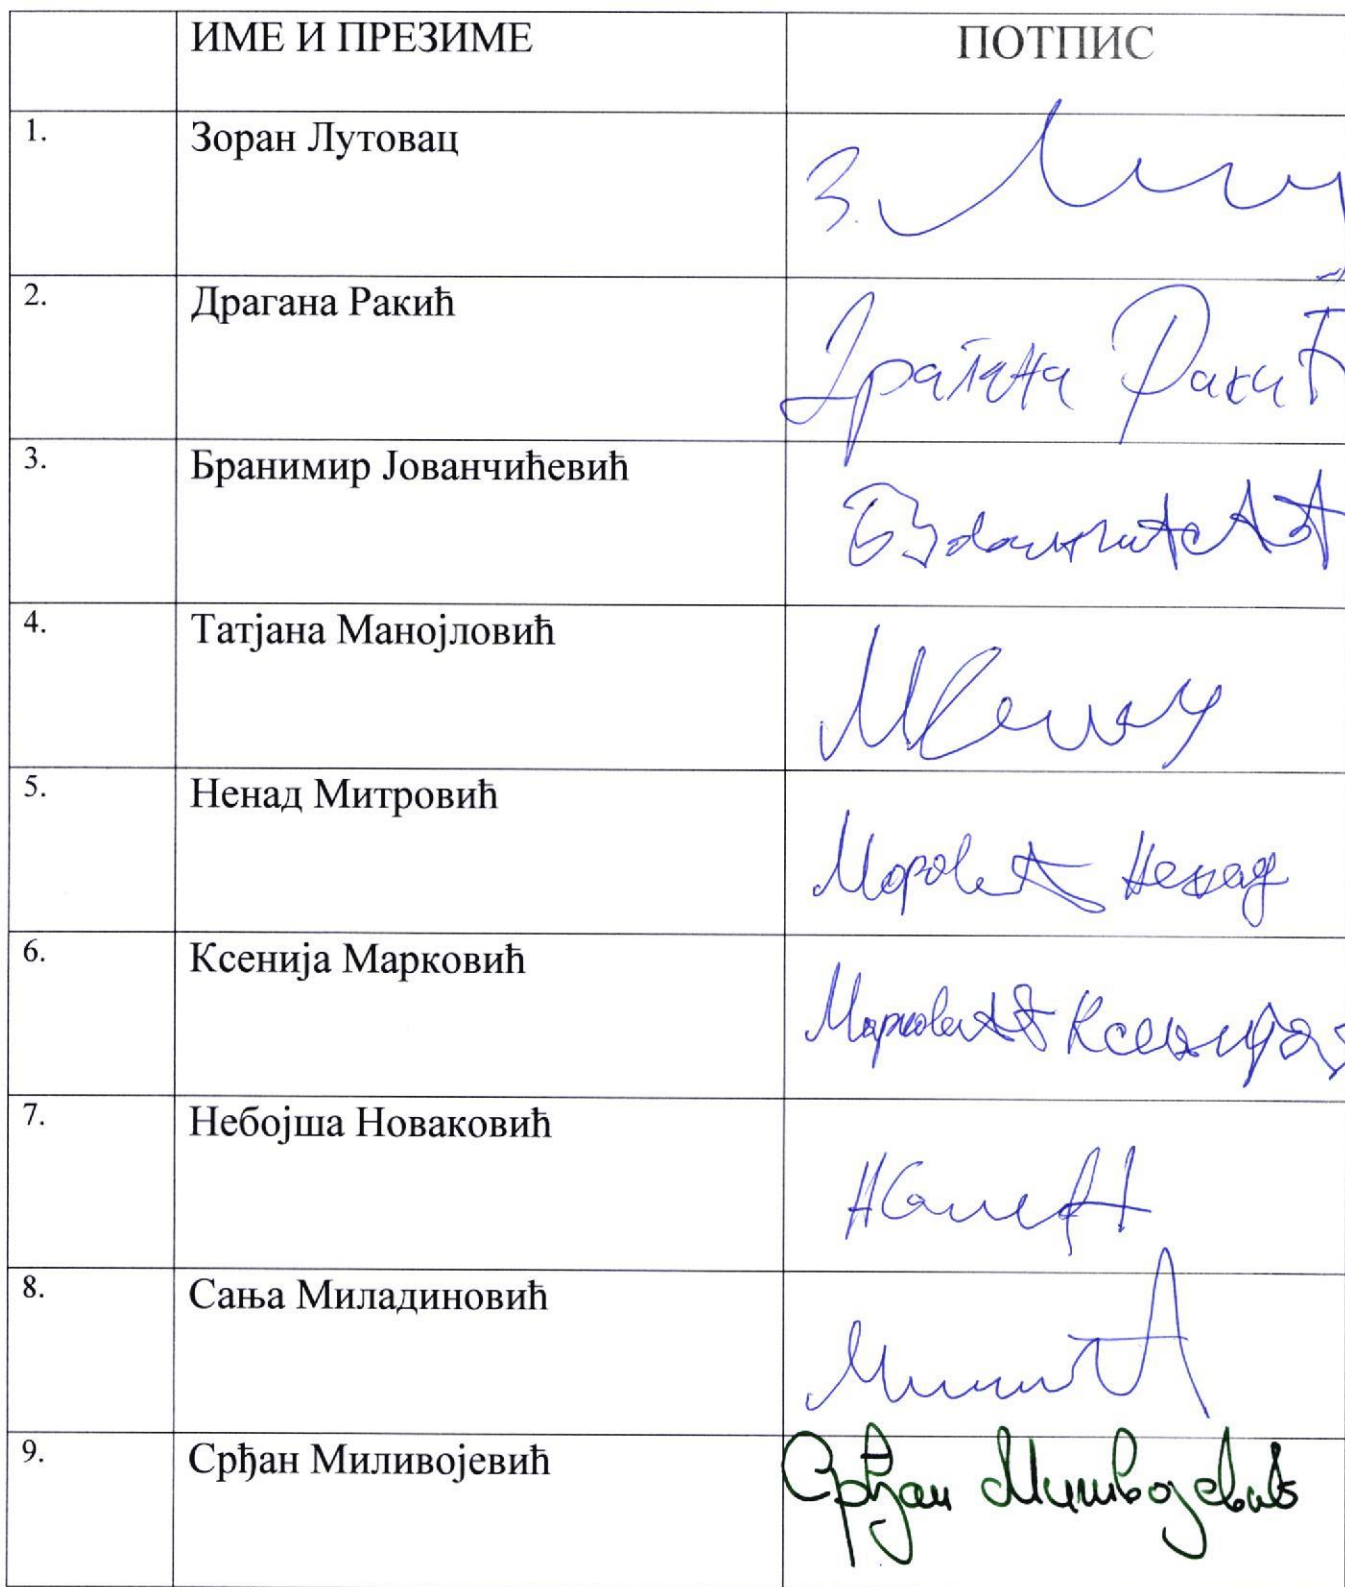 ИМЕ И ПРЕЗИМЕ ПОТПИС
1. Зоран Лутовац З.
2. Драгана Ракић Драгана Ракић
3. Бранимир Јованчићевић
4. Татјана Манојловић
5. Ненад Митровић Ненад
6. Ксенија Марковић Марковић Ксенија
7. Небојша Новаковић
8. Сања Миладиновић
9. Срђан Миливојевић Срђан Миливојевић